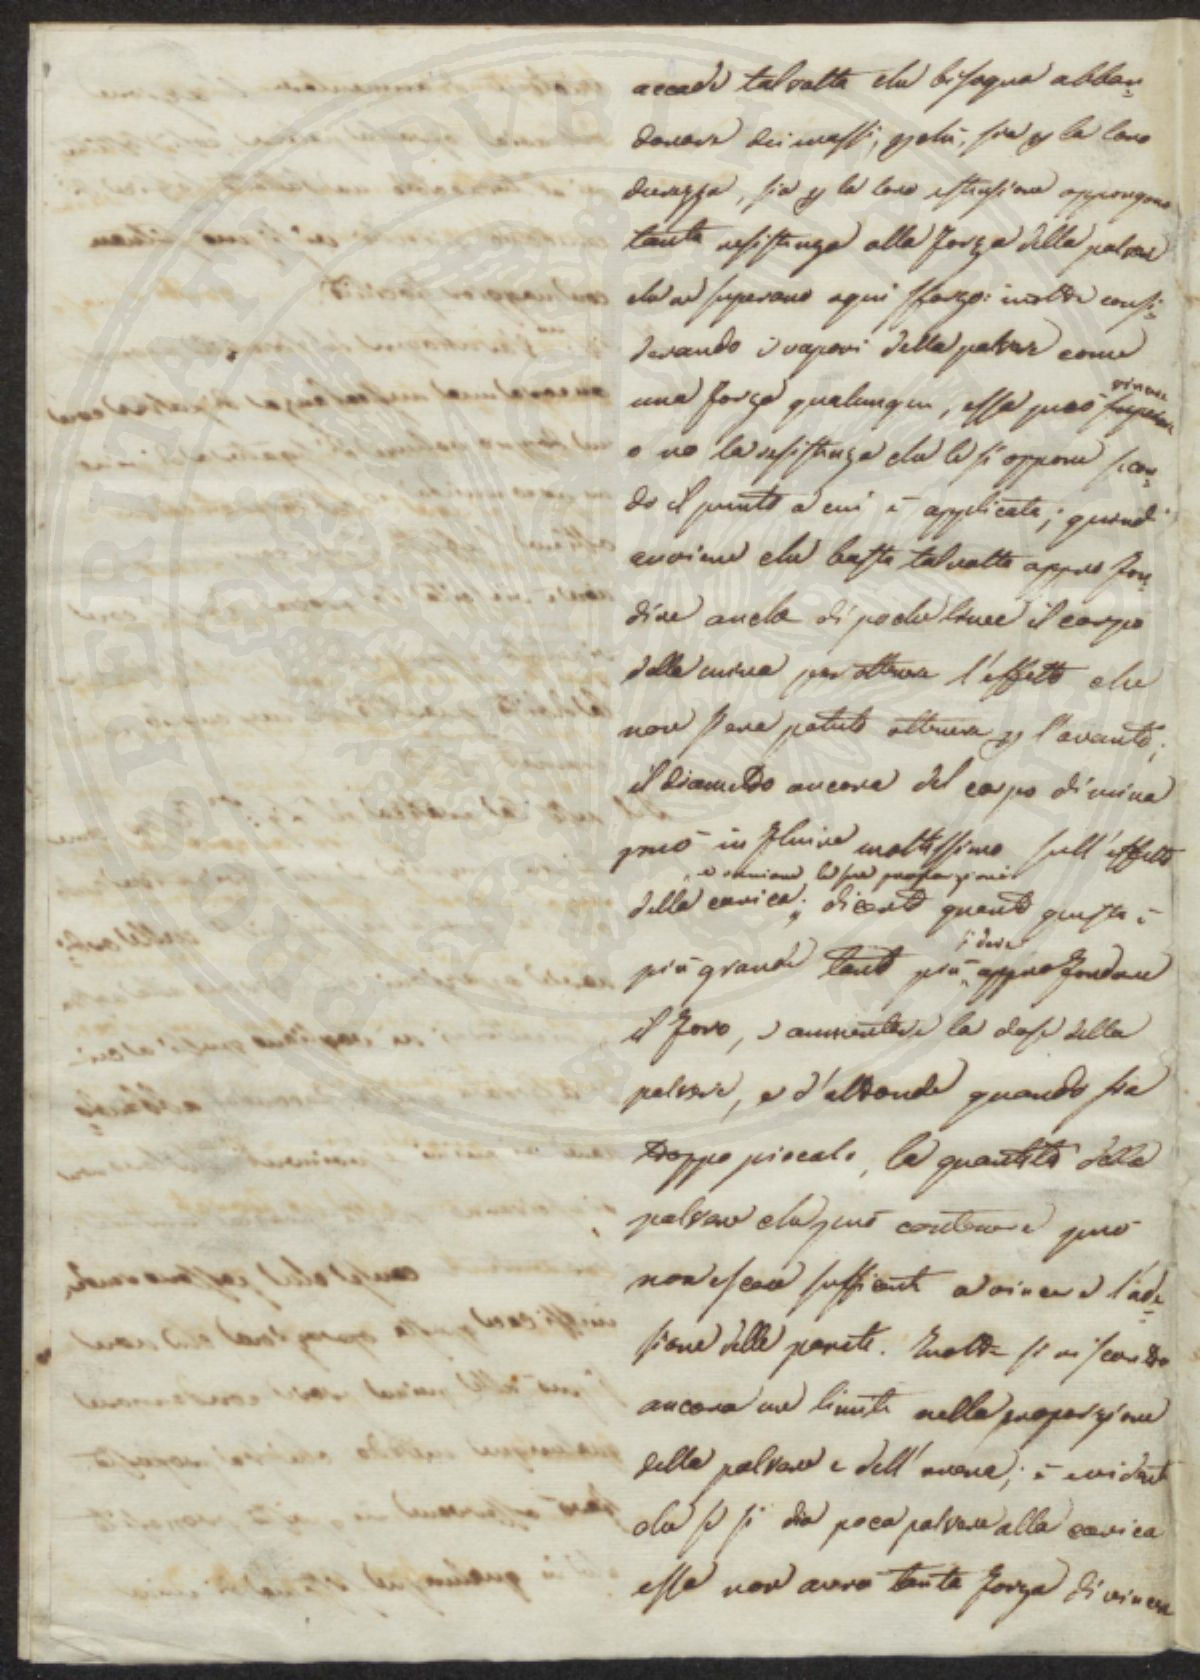 accade talvolta che bisogna abban=
donare dei massi, perchè, sia per la loro
durezza, sia per la loro estensione oppongono
tanta resistenza alla forza della polvere
che ne superano ogni sforzo: inoltre consi=
derando i vapori della polvere come
una forza qualunque, essa può superare vincere
o no la resistenza che le si oppone secon=
do il punto a cui è applicata; quindi
avviene che basta talvolta appro fon=
dire anche di poche linee il corpo
della mina per ottenere l'effetto che
non s'era potuto ottenere per l'avanti;
il diametro ancora del corpo di mina
può influire moltissimo sull'effetto
della carica; e sue proporzioni di certo quanto questa è
più grande tanto più si deve approfondare
il foro, e aumentare la dose della
polvere, e d'altronde quando sia
troppo piccolo, la quantità della
polvere che può contenere può
non essere sufficiente a vincere l'ade=
sione delle pareti. Inoltre si riscontra
ancora un limite nella proporzione
della polvere e dell'arena; è evidente
che se si dia poca polvere alla carica
essa non avrà tanta forza di vincere